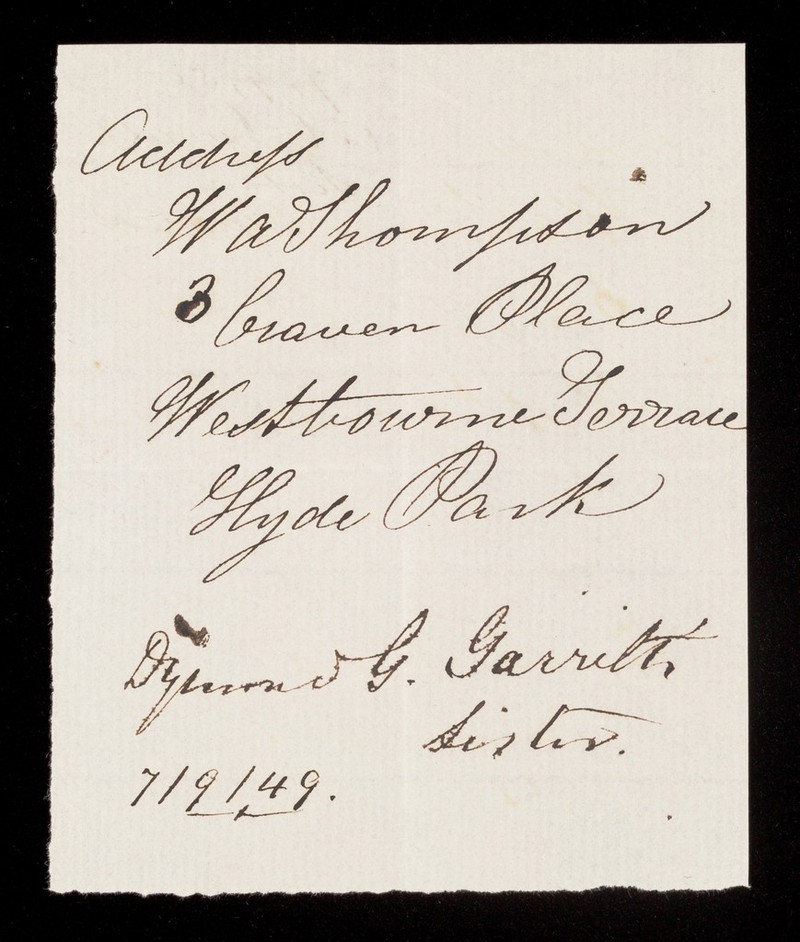 Address
W A Thompson
3 Craven Place
Westbourne Terrace
Hyde Park
Dymond G. Garritt,
Sister.
7/9/49.